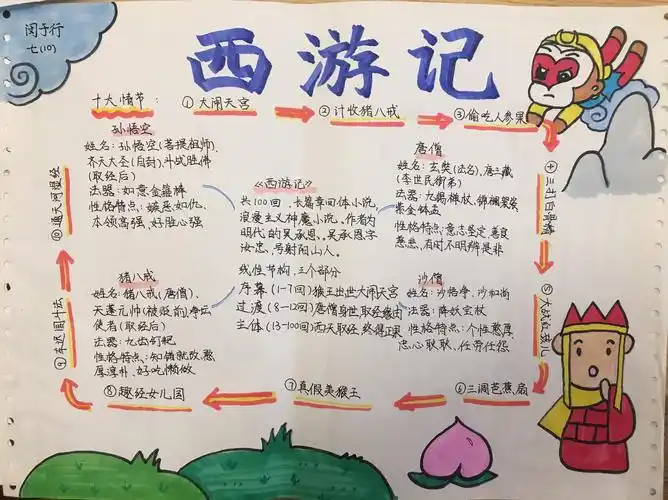 闵子行
七(10)
西游记
十大情节:
①大闹天宫
②计收猪八戒
③偷吃人参果
④三打白骨精
⑤大战红孩儿
⑥三调芭蕉扇
⑦真假美猴王
⑧趣经女儿国
⑨车迟国斗法
⑩通天河遇经
孙悟空
姓名:孙悟空(菩提祖师),
齐天大圣(自封)斗战胜佛
(取经后)
法器:如意金箍棒
性格特点:嫉恶如仇、
本领高强、好胜心强
《西游记》
共100回,长篇章回体小说,
浪漫主义神魔小说。作者为
明代的吴承恩。吴承恩字
汝忠,号射阳山人。
线性节构,三个部分
序幕(1-7回)猴王出世大闹天宫
过渡(8-12回)唐僧身世,取经缘由
主体(13-100回)西天取经,终得正果
唐僧
姓名:玄奘(法名),唐三藏
(李世民御弟)
法器:九锡禅杖,锦襕袈裟
紫金钵盂
性格特点:意志坚定、善良
慈悲,有时不明辨是非
猪八戒
姓名:猪八戒(唐僧),
天蓬元帅(被贬前)净坛
使者(取经后)
法器:九齿钉耙
性格特点:知错就改,憨
厚淳朴、好吃懒做
沙僧
姓名:沙悟净,沙和尚
法器:降妖宝杖
性格特点:个性憨厚,
忠心耿耿、任劳任怨